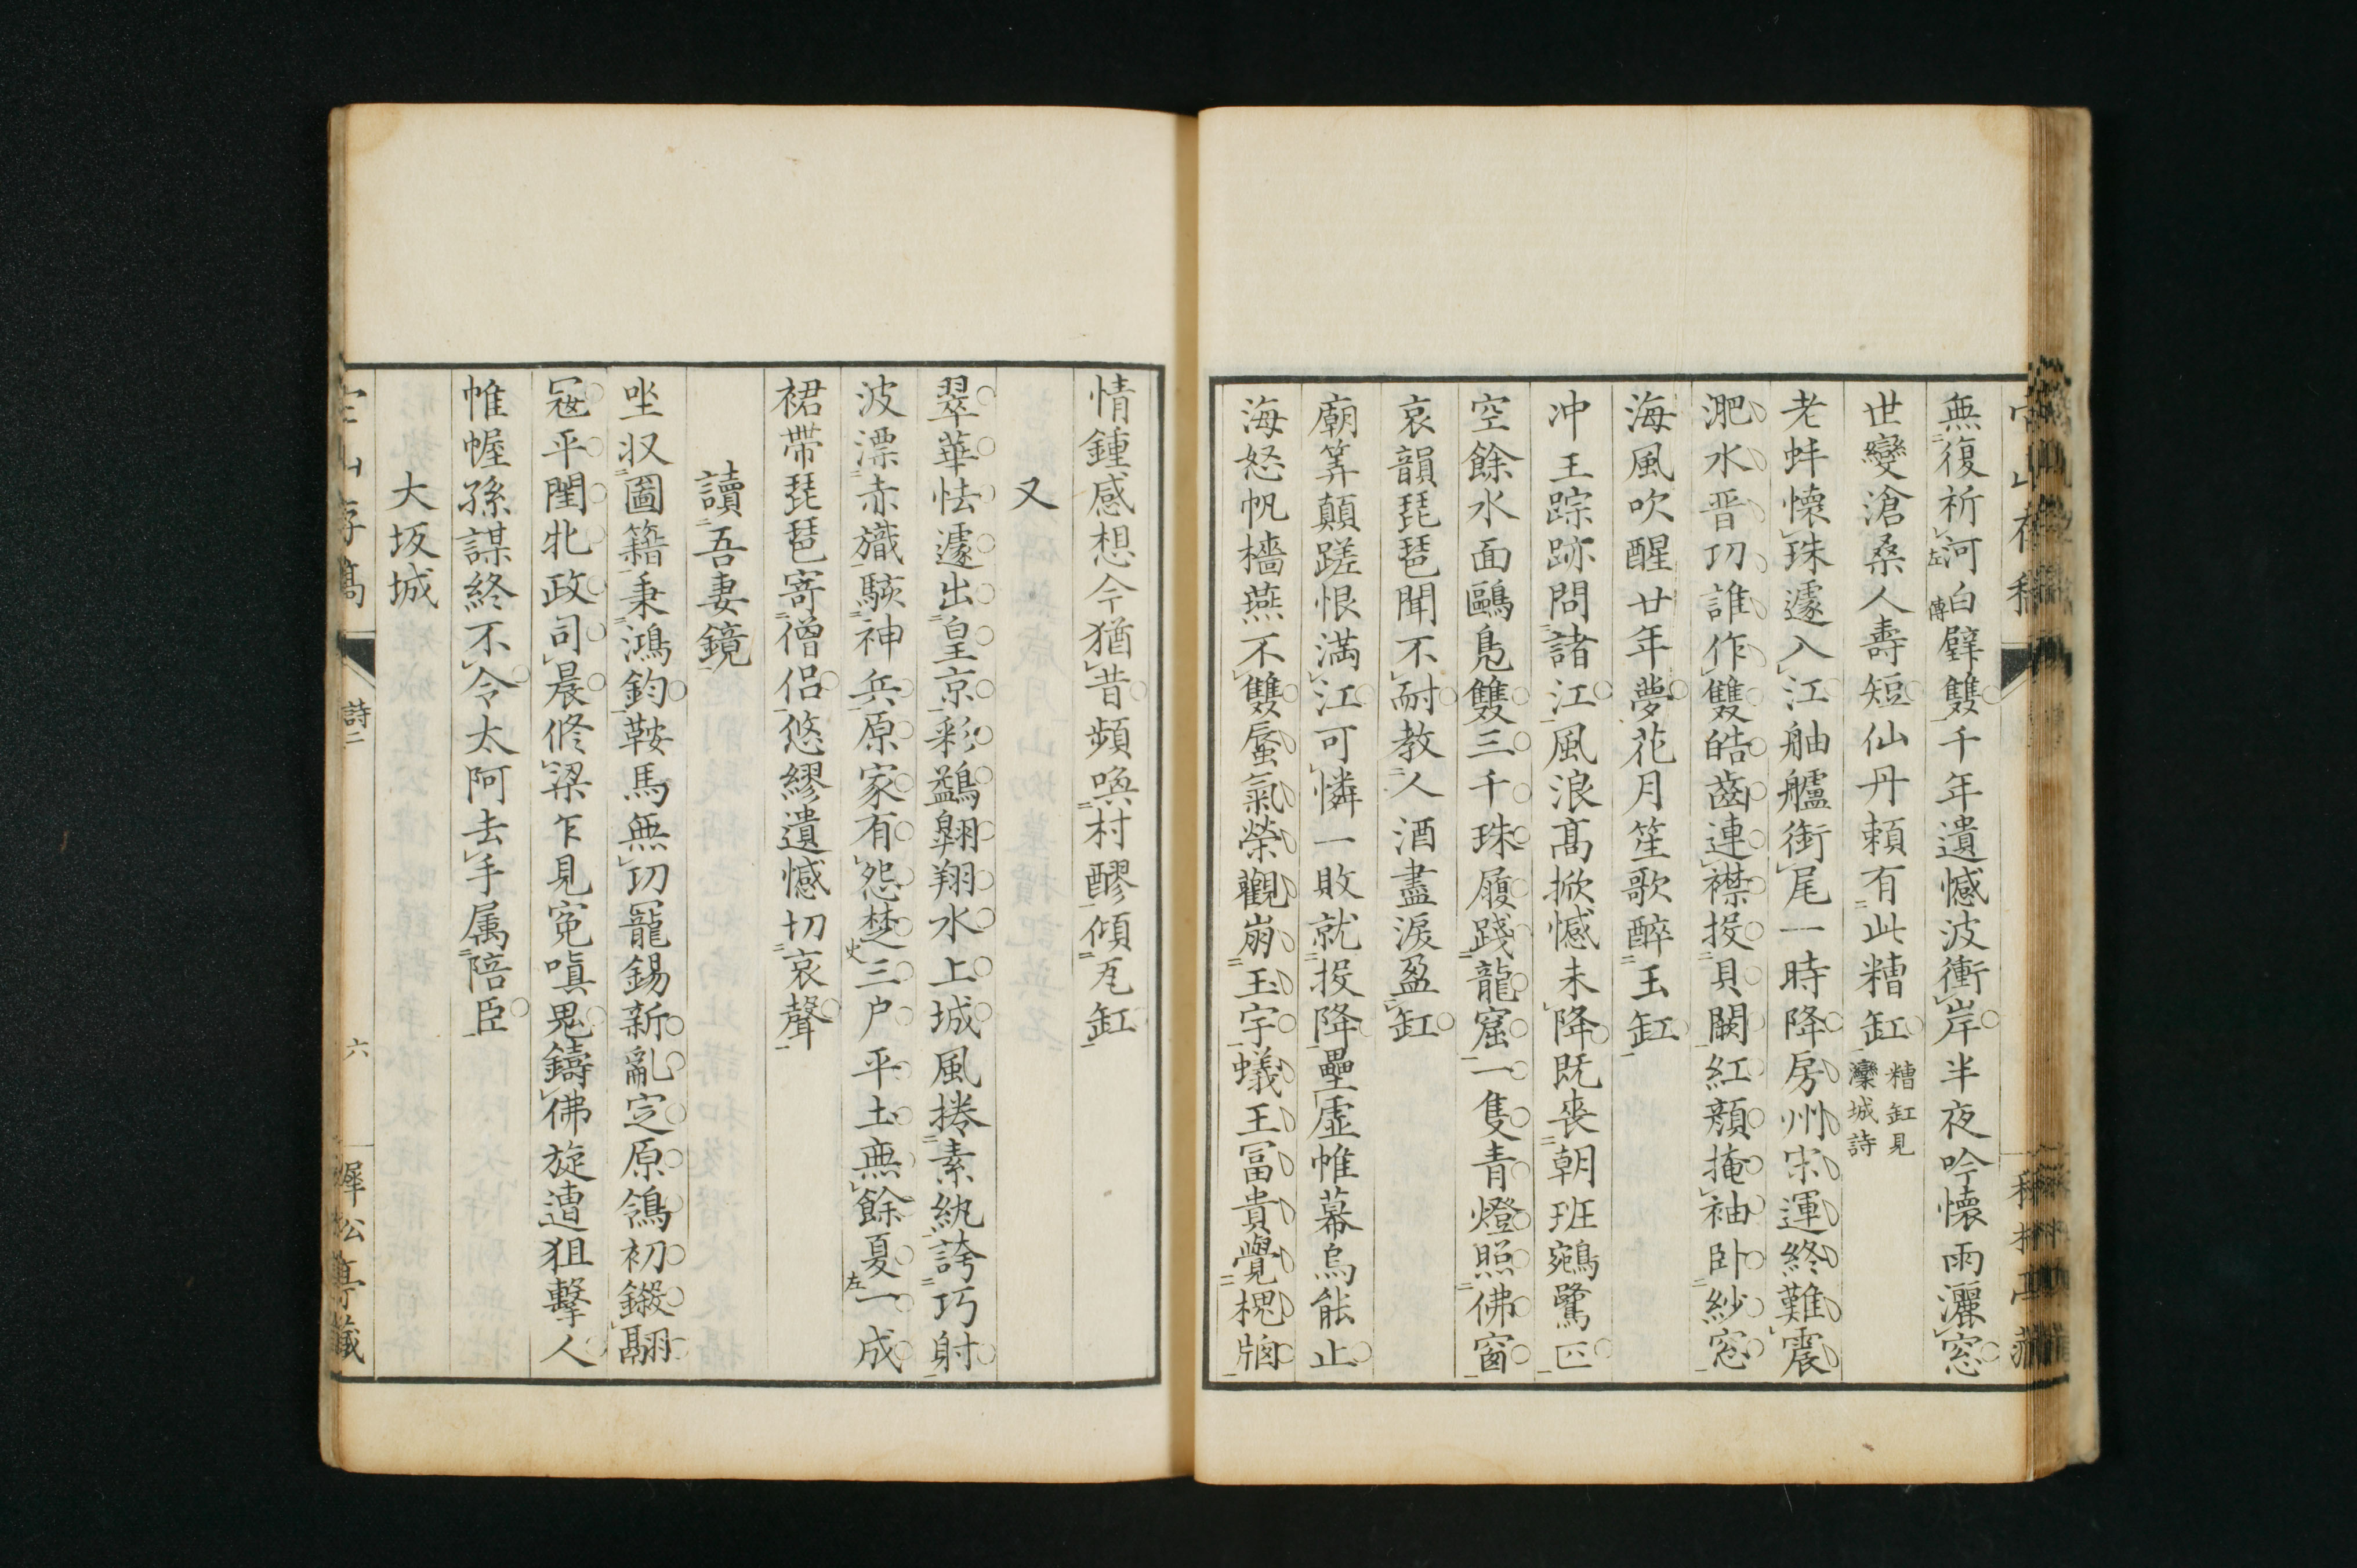 無復祈河白璧雙千年遺憾波衝岸半夜吟懷雨灑窓
左傳
世變滄桑人壽短仙丹頼有此糟缸
糟缸見
灤城詩
老蚌懷珠遽入江舳艫銜尾一時降房州宋運終難震
淝水晋功誰作雙皓齒連襟投貝闕紅顏掩袖卧紗窓
海風吹醒廿年夢花月笙歌醉玉缸
冲王踪跡問諸江風浪髙掀憾未降既丧朝班鵷鷺匹
空餘水面鷗鳬雙三千珠履踐龍窟一隻青燈照佛窗
哀韻琵琶聞不耐教人酒盡淚盈缸
廟筭顛蹉恨満江可憐一敗就投降壘虛帷幕烏能止
海怒帆檣燕不雙蜃氣榮觀崩玉宇蟻王冨貴覺槐牕
情鍾感想今猶昔頻喚村醪傾瓦缸
又
翠華怯遽出皇京彩鷁翺翔水上城風捲素紈誇巧射
波漂赤幟駭神兵原家有怨楚三户平土無餘夏一成
史
左
裙帯琵琶寄僧侶悠繆遺憾切哀聲
讀吾妻鏡
坐収圖籍秉鴻鈞鞍馬無功寵錫新亂定原鴒初鎩翮
冦平閨牝政司晨修梁乍見寃嗔鬼鑄佛旋遭狙擊人
帷幄孫謀終不令太阿去手属陪臣
大坂城
詩二
六
犀松亭蔵